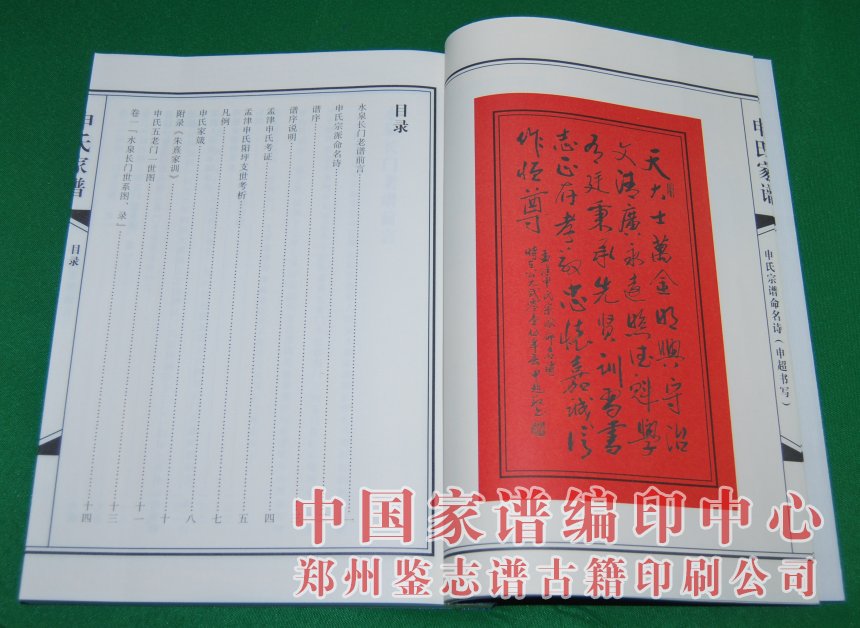 申氏家谱
申氏宗谱命名诗（申超书写）
天大士萬金明興守治
文清廣永遠照德魁學
廷秉承先贤训
志正存孝敬忠懷嘉誠信
作恒尊
目录
水泉长门老谱前言 一
申氏宗派命名诗
谱序
谱序说明 四
孟津申氏考证 五
孟津申氏阳坪支世考析 七
凡例 八
申氏家箴 十
附录《朱熹家训》 十一
申氏五老门一世图 十三
卷一「水泉长门世系图、录」 十四
申氏家谱
目录
中国家谱编印中心
郑州鉴志谱古籍印刷公司